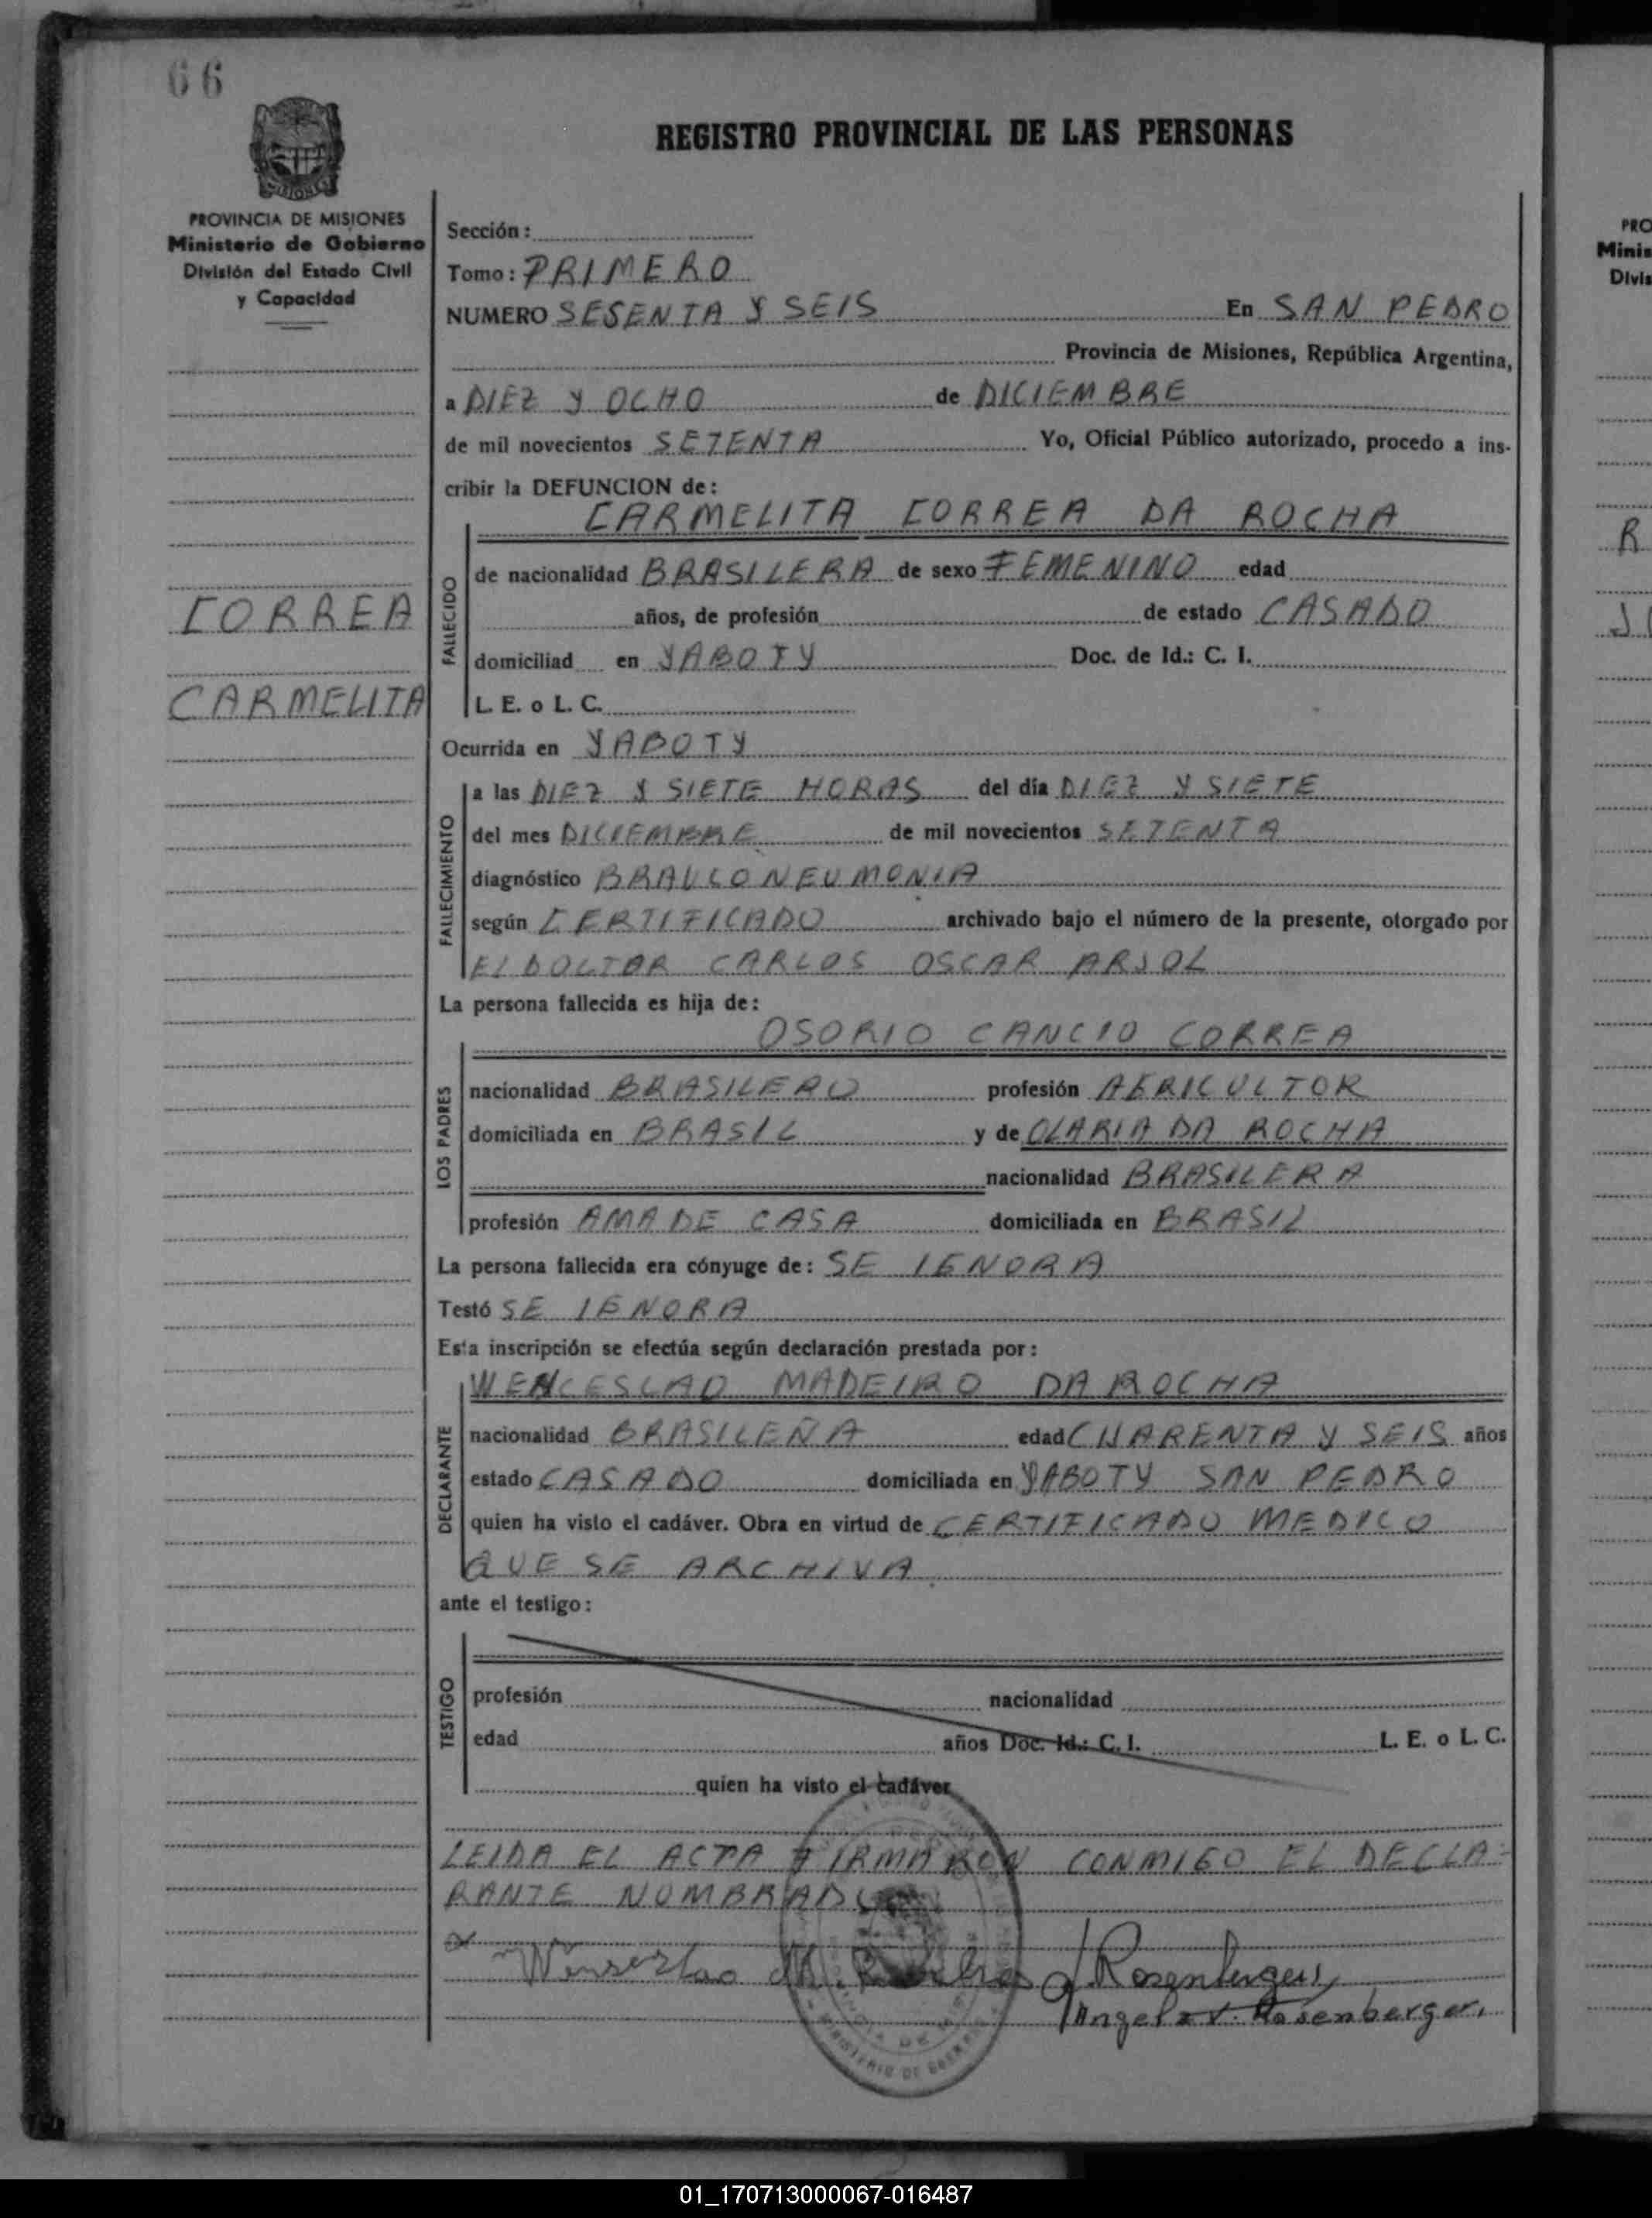 66
REGISTRO PROVINCIAL DE LAS PERSONAS
MISIONES
PROVINCIA DE MISIONES
Ministerio de Gobierno
División del Estado Civil
y Capacidad
CORREA
CARMELITA
Sección:
Tomo: PRIMERO
NUMERO SESENTA Y SEIS En SAN PEDRO
Provincia de Misiones, República Argentina,
a DIEZ Y OCHO de DICIEMBRE
de mil novecientos SETENTA Yo, Oficial Público autorizado, procedo a ins-
cribir la DEFUNCION de:
CARMELITA CORREA DA ROCHA
FALLECIDO
de nacionalidad BRASILERA de sexo FEMENINO edad
años, de profesión de estado CASADO
domiciliad en YABOTY Doc. de Id.: C. I.
L. E. o L. C.
Ocurrida en YABOTY
FALLECIMIENTO
a las DIEZ Y SIETE HORAS del día DIEZ Y SIETE
del mes DICIEMBRE de mil novecientos SETENTA
diagnóstico BRAUCONEUMONIA
según CERTIFICADO archivado bajo el número de la presente, otorgado por
EL DOCTOR CARLOS OSCAR
La persona fallecida es hija de:
OSORIO CANCIO CORREA
LOS PADRES
nacionalidad BRASILERO profesión AGRICULTOR
domiciliada en BRASIL y de OLARIA DA ROCHA
nacionalidad BRASILERA
profesión AMA DE CASA domiciliada en BRASIL
La persona fallecida era cónyuge de: SE IGNORA
Testó SE IGNORA
Esta inscripción se efectúa según declaración prestada por:
WENCESLAO MADEIRO DA ROCHA
DECLARANTE
nacionalidad BRASILEÑA edad CUARENTA Y SEIS años
estado CASADO domiciliada en YABOTY SAN PEDRO
quien ha visto el cadáver. Obra en virtud de CERTIFICADO MEDICO
QUE SE ARCHIVA
ante el testigo:
TESTIGO
profesión nacionalidad
edad años Doc. Id.: C. I. L. E. o L. C.
quien ha visto el cadáver
LEIDA EL ACTA FIRMARON CONMIGO EL DECLA-
RANTE NOMBRADO
Rosenberger
Angel V. Rosenberger
PRO
Minis
Divis
R
J
01_170713000067-016487